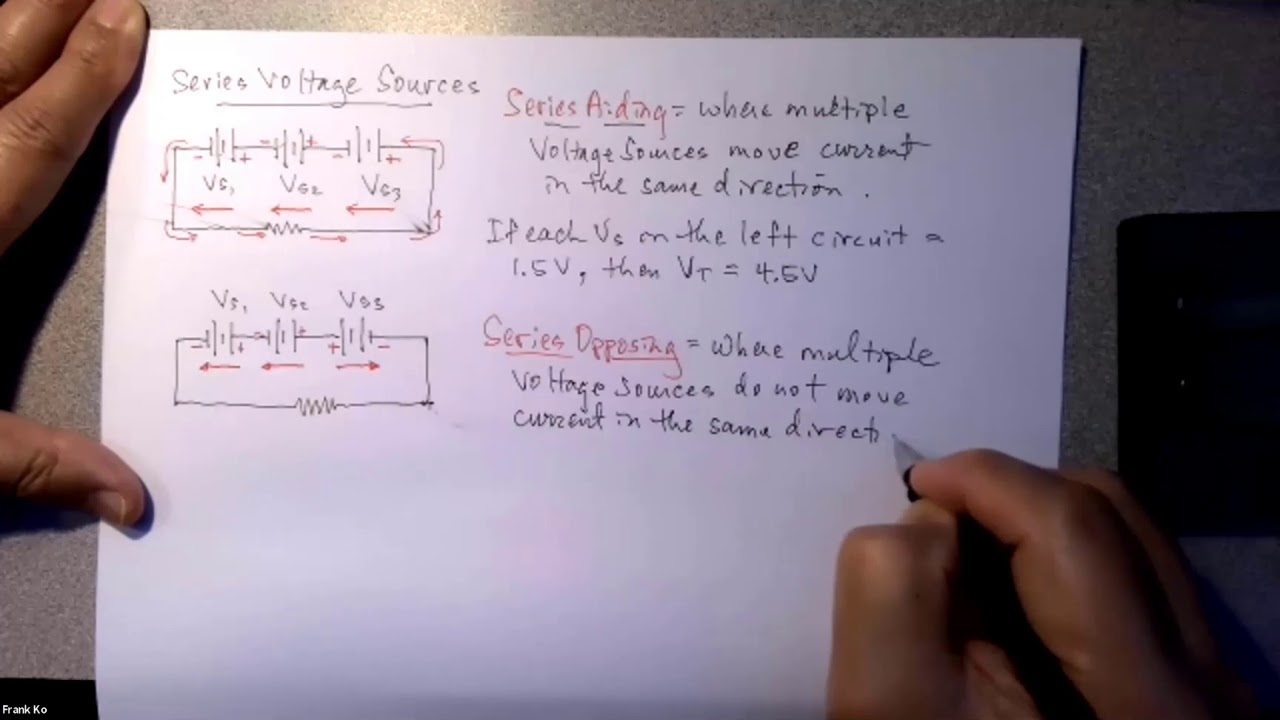 Series Voltage Sources
- + - + - +
Vs1 Vs2 Vs3
Series Aiding = where multiple
Voltage Sources move current
in the same direction.
If each Vs on the left circuit =
1.5V, then VT = 4.5V
Vs1 Vs2 Vs3
- + - + + -
Series Opposing = where multiple
Voltage Sources do not move
current in the same direct
Frank Ko